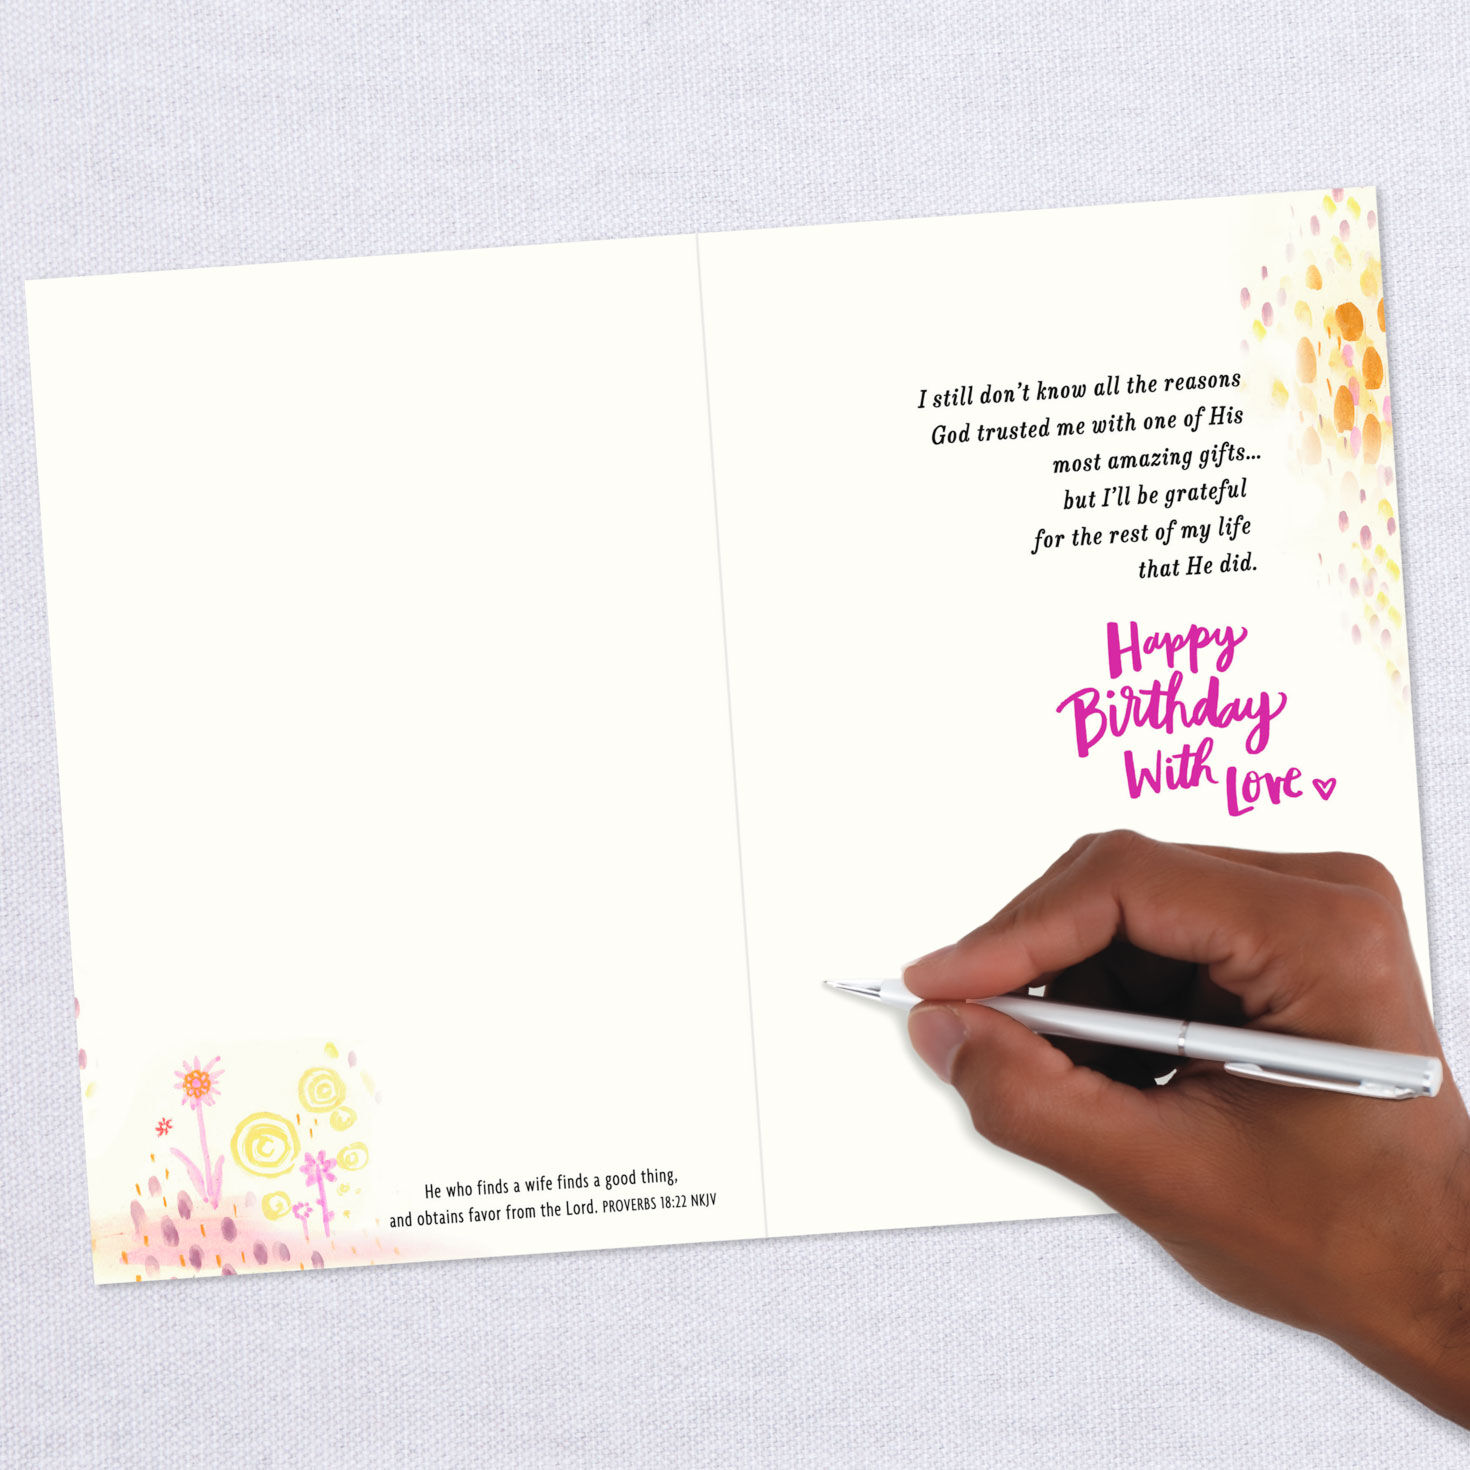 He who finds a wife finds a good thing,
and obtains favor from the Lord. PROVERBS 18:22 NKJV
I still don't know all the reasons
God trusted me with one of His
most amazing gifts...
but I'll be grateful
for the rest of my life
that He did.
Happy
Birthday
With Love